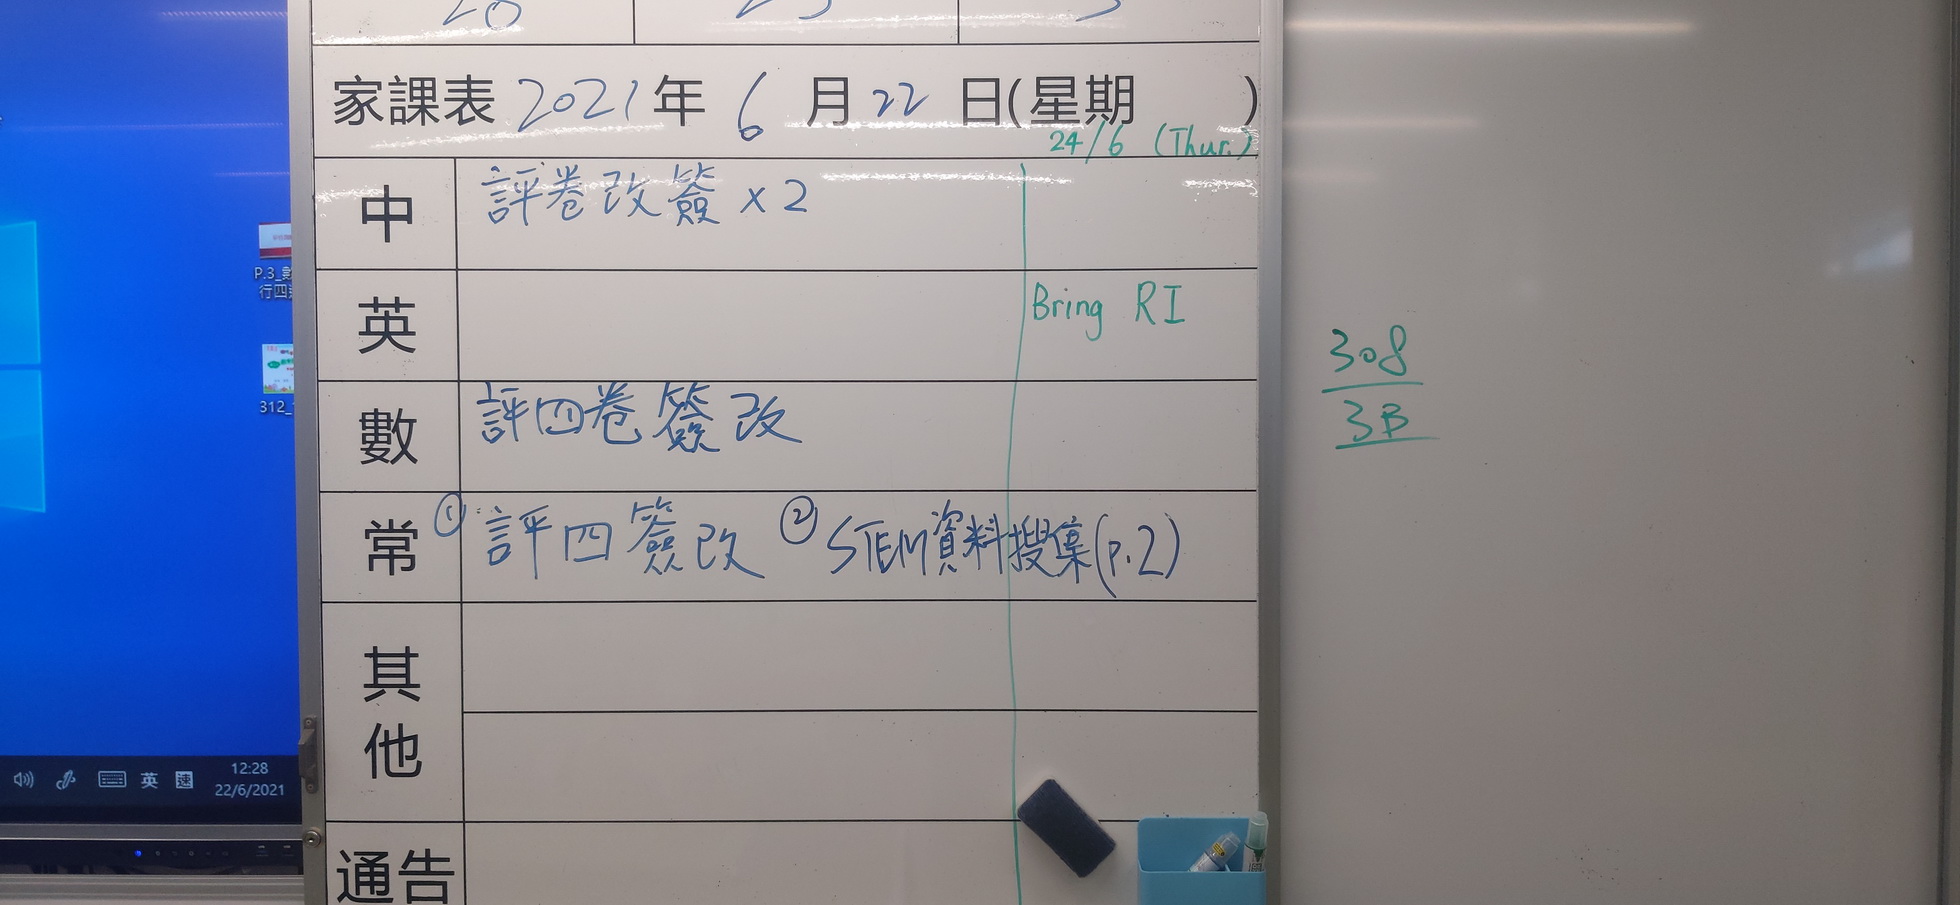 28
家課表 2021年 6 月 22 日(星期 )
24/6 (Thur.)
中 評卷改簽 x 2
英 Bring RI
數 評四卷簽改
常 ① 評四簽改 ② STEM資料搜集(p.2)
其他
通告
308
3B
P.3_
行四
312_
英
速
12:28
22/6/2021